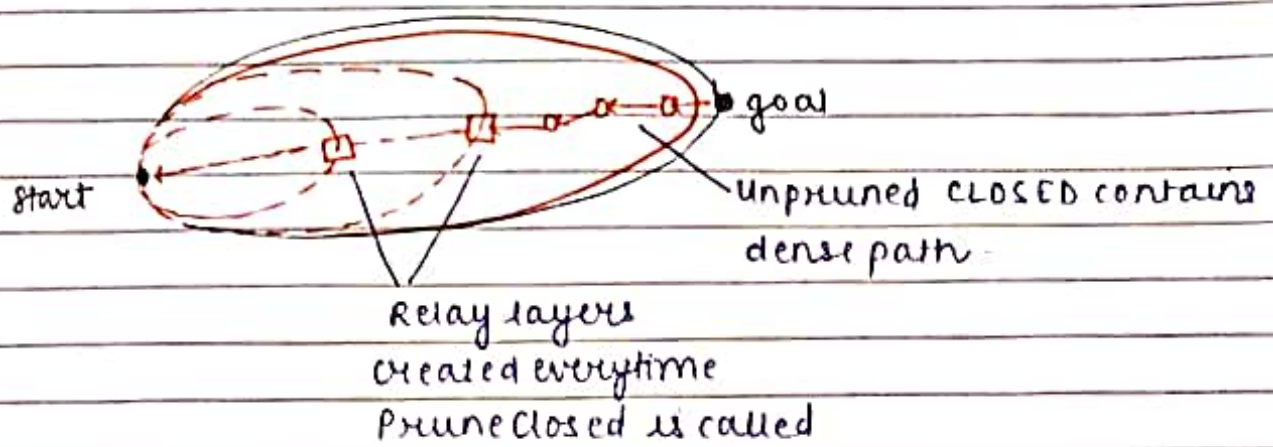 goal
Start
Unpruned CLOSED contains
dense path
Relay layers
created everytime
PruneClosed is called